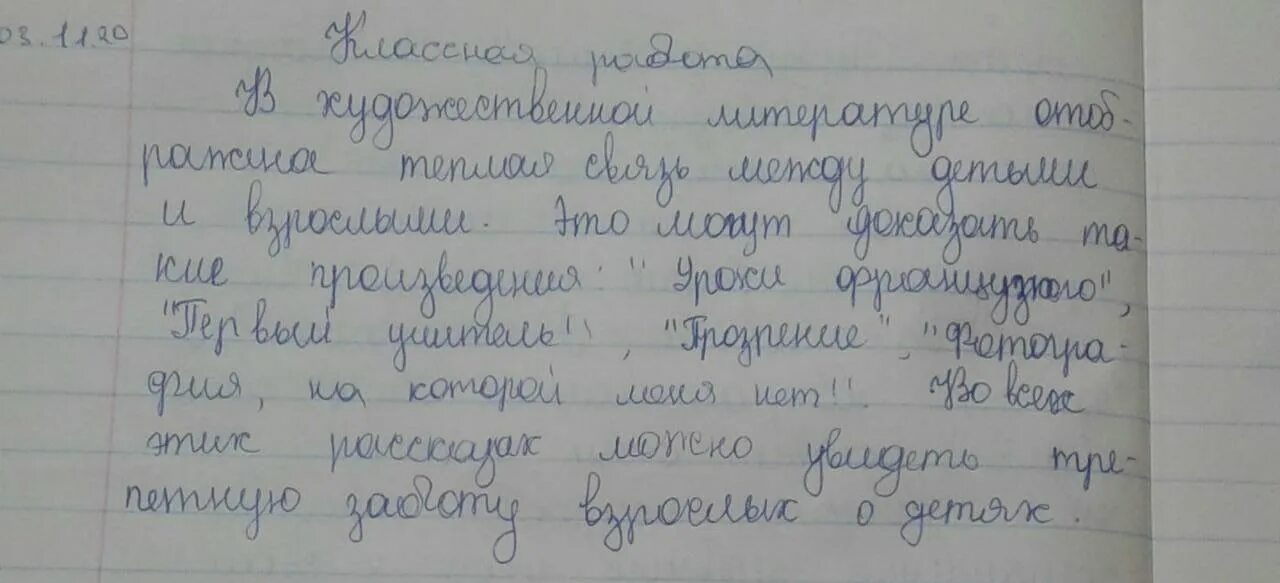 03.11.20
Классная работа
В художественной литературе отоб-
ражена теплая связь между детьми
и взрослыми. Это могут доказать та-
кие произведения: "Уроки французкого",
"Первый учитель", "Прозрение", "Фотогра-
фия, на которой меня нет". Во всех
этих рассказах можно увидеть тре-
петную заботу взрослых о детях.